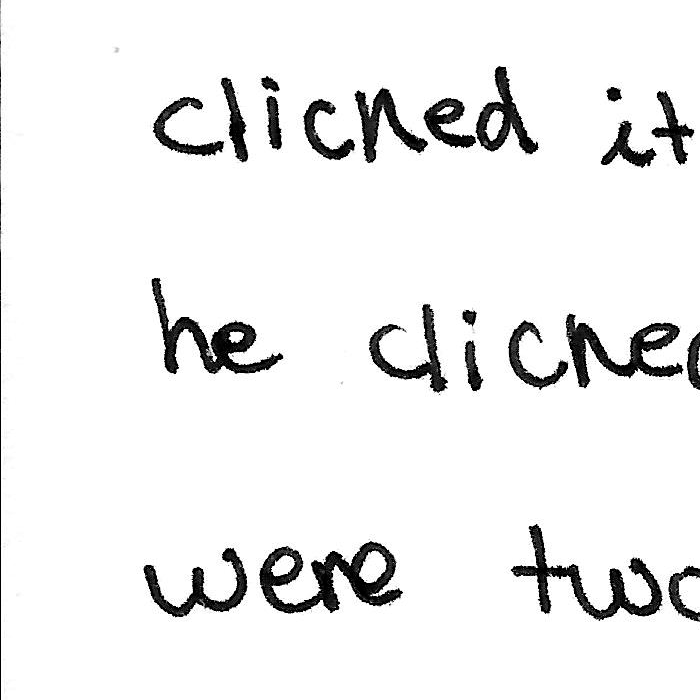 clicked it
he clicked
were two